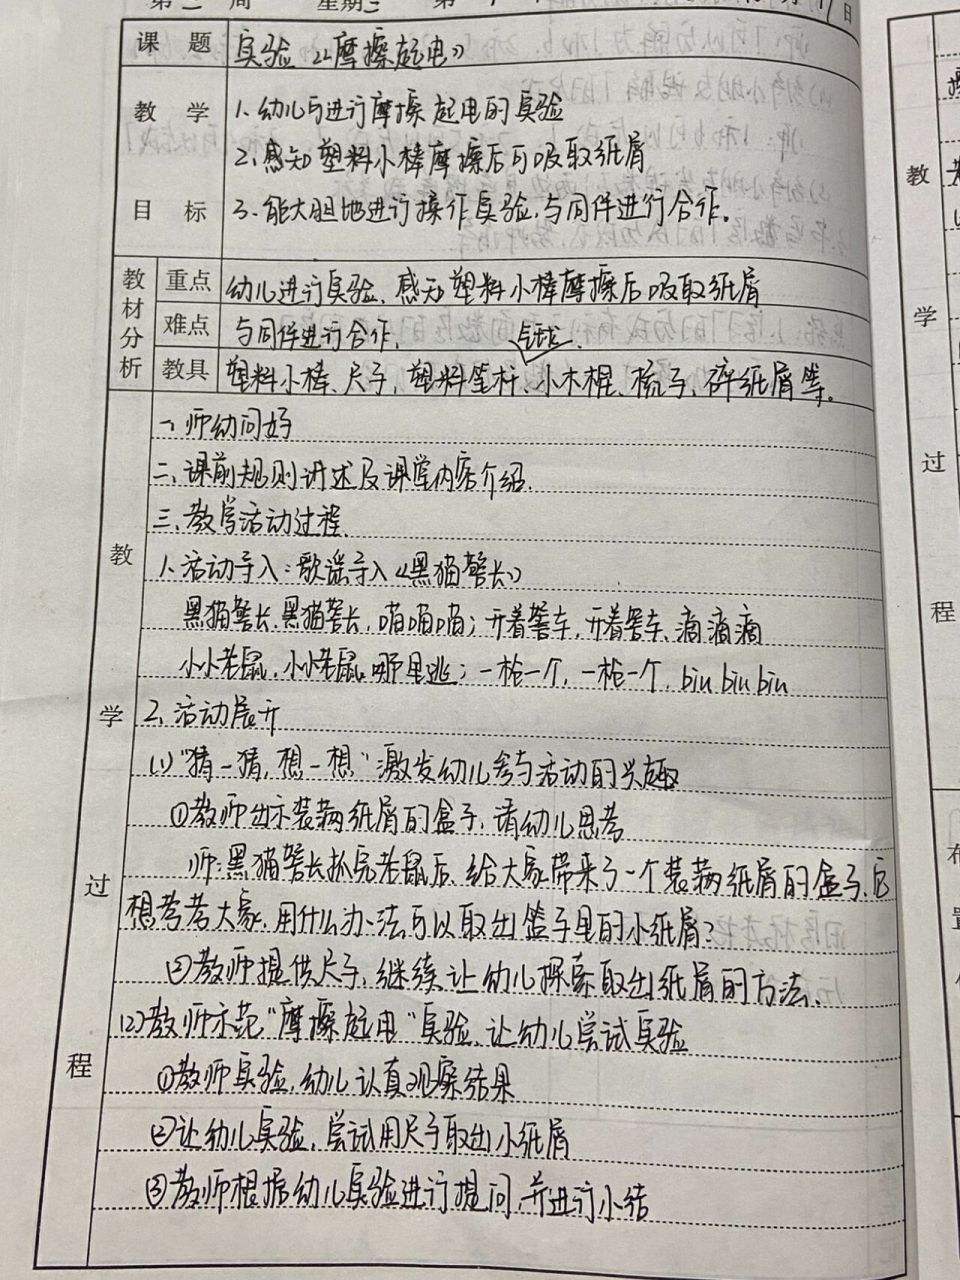 第二周 星期三 第 月17日
课题 实验《摩擦起电》
教学目标
1. 幼儿与进行摩擦起电的实验
2. 感知塑料小棒摩擦后可吸取纸屑
3. 能大胆地进行操作实验,与同伴进行合作。
教材分析
重点 幼儿进行实验、感知塑料小棒摩擦后吸取纸屑
难点 与同伴进行合作.
气球
教具 塑料小棒、尺子,塑料笔杆、小木棍、梳子、碎纸屑等。
教学过程
一、师幼问好
二、课前规则讲述及课堂内容介绍.
三、教学活动过程
1. 活动导入:歌谣导入《黑猫警长》
黑猫警长.黑猫警长,喵喵喵;开着警车,开着警车、滴滴滴
小小老鼠,小小老鼠.哪里逃;一枪一个,一枪一个,biu biu biu
2. 活动展开
(1)"猜一猜,想一想"激发幼儿参与活动的兴趣
①教师出示装满纸屑的盒子,请幼儿思考
师:黑猫警长抓完老鼠后,给大家带来了一个装满纸屑的盒子.它
想考考大家,用什么办法可以取出盒子里的小纸屑?
②教师提供尺子,继续让幼儿探索取出纸屑的方法.
(2)教师示范"摩擦起电"实验,让幼儿尝试实验
①教师实验,幼儿认真观察结果
②让幼儿实验,尝试用尺子取出小纸屑
③教师根据幼儿实验进行提问,并进行小结
教
学
过
程
布
置